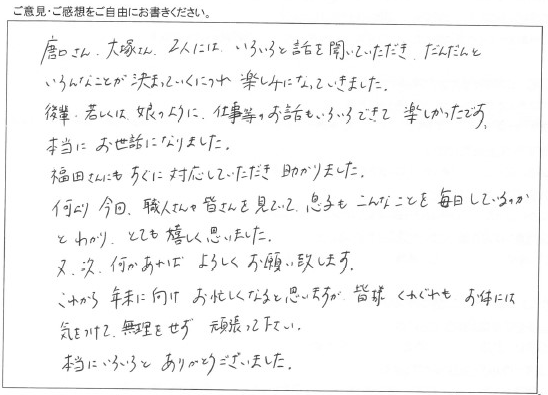 ご意見・ご感想をご自由にお書きください。
唐口さん、大塚さん、2人には、いろいろと話を聞いていただき、だんだんと
いろんなことが決まっていくにつれ楽しみになっていきました。
後輩、若しくは、娘のように、仕事等のお話もいろいろできて楽しかったです。
本当にお世話になりました。
福田さんにもすぐに対応していただき助かりました。
何より今回、職人さんや皆さんを見ていて、息子もこんなことを毎日しているのか
とわかり、とても嬉しく思いました。
又、次、何かあればよろしくお願い致します。
これから年末に向けお忙しくなると思いますが、皆様くれぐれもお体には
気をつけて、無理をせず頑張って下さい。
本当にいろいろとありがとうございました。